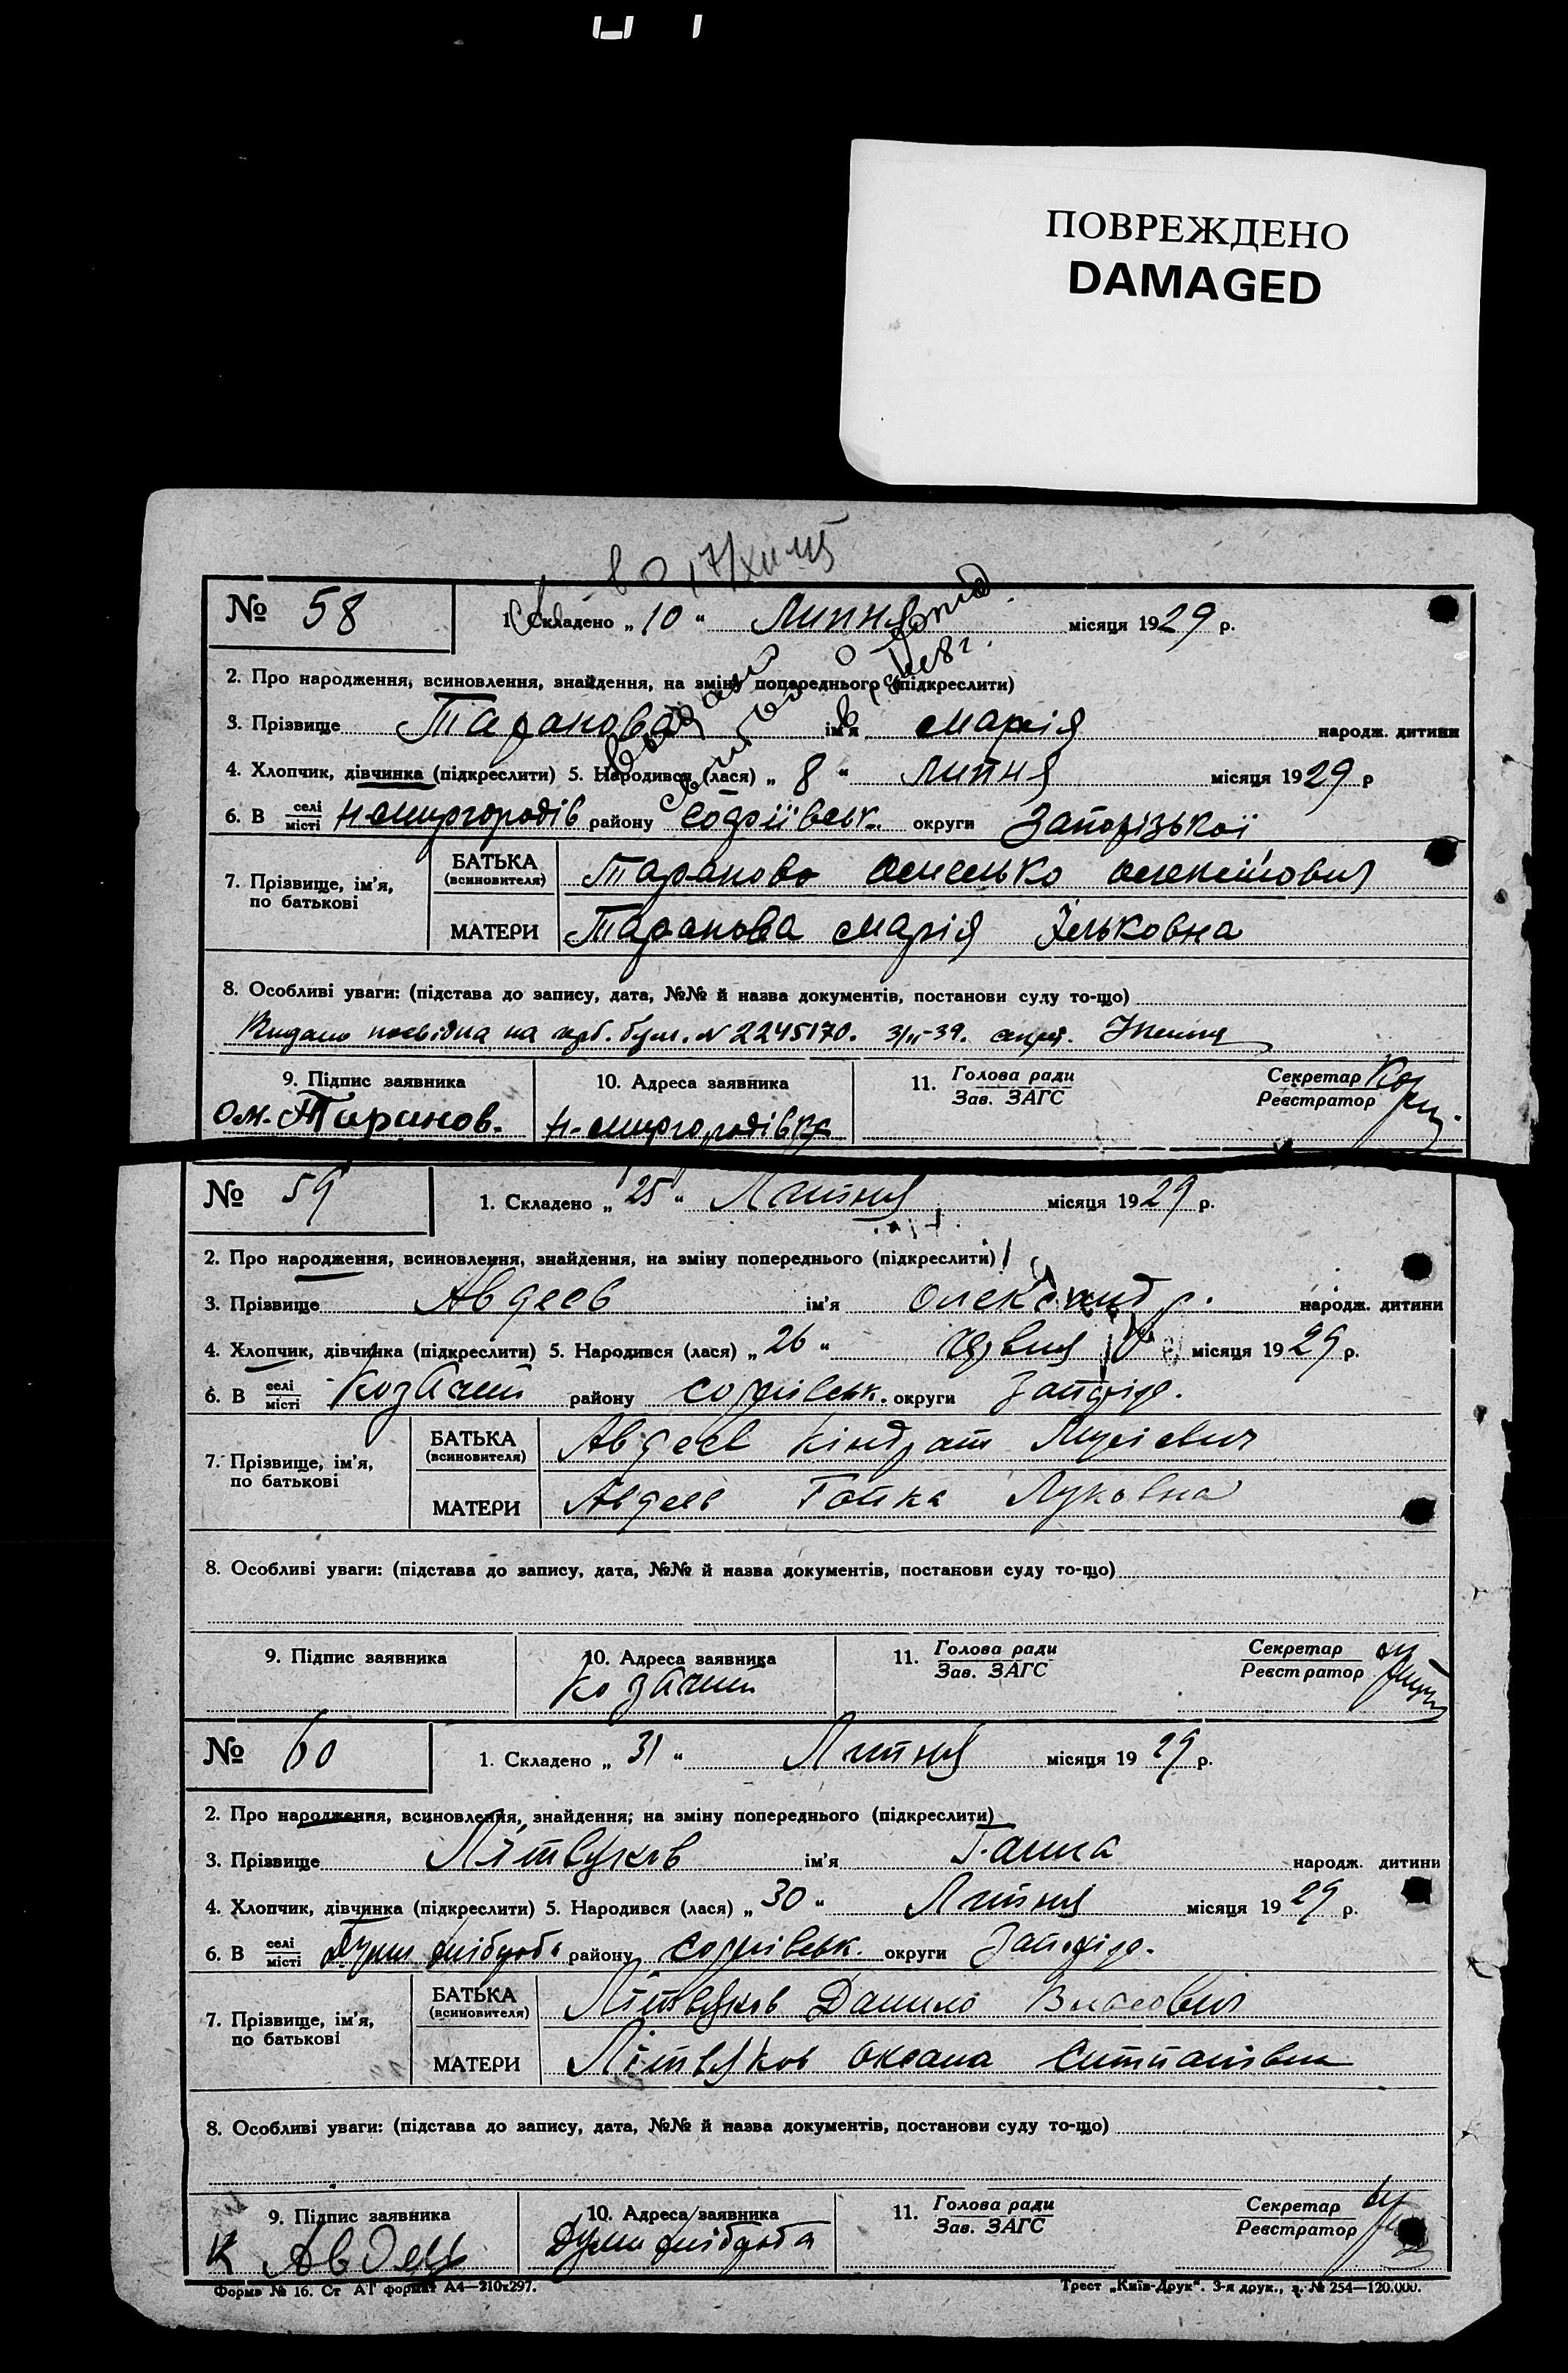 ПОВРЕЖДЕНО
DAMAGED
17/XII 45
№ 58
1. Складено „ 10 “ Липня місяця 1929 р.
2. Про народження, всиновлення, знайдення, на зміну попереднього (підкреслити)
3. Прізвище Таранова ім'я Марія народж. дитини
4. Хлопчик, дівчинка (підкреслити) 5. Народився (лася) „ 8 “ Липня місяця 1929 р
6. В селі місті Н Миргородів району Софіївськ. округи Запорізької
7. Прізвище, ім'я, по батькові
БАТЬКА (всиновителя) Таранова
МАТЕРИ Таранова Марія Ільковна
8. Особливі уваги: (підстава до запису, дата, №№ й назва документів, постанови суду то-що)
Видано на бум. N 2245170. 39.
9. Підпис заявника
Ом. Таранов.
10. Адреса заявника
Н-Миргородівка
11. Голова ради Зав. ЗАГС
Секретар Реєстратор
№ 59
1. Складено „ 25 “ Липня місяця 1929 р.
2. Про народження, всиновлення, знайдення, на зміну попереднього (підкреслити)
3. Прізвище Авдеев ім'я Олександр. народж. дитини
4. Хлопчик, дівчинка (підкреслити) 5. Народився (лася) „ 26 “ місяця 1929 р.
6. В селі місті району Софіївськ. округи Запоріз.
7. Прізвище, ім'я, по батькові
БАТЬКА (всиновителя) Авдеев Кіндрат
МАТЕРИ Авдеев Луковна
8. Особливі уваги: (підстава до запису, дата, №№ й назва документів, постанови суду то-що)
9. Підпис заявника
10. Адреса заявника
11. Голова ради Зав. ЗАГС
Секретар Реєстратор
№ 60
1. Складено „ 31 “ Липня місяця 19 29 р.
2. Про народження, всиновлення, знайдення, на зміну попереднього (підкреслити)
3. Прізвище Літвяков ім'я Ганна народж. дитини
4. Хлопчик, дівчинка (підкреслити) 5. Народився (лася) „ 30 “ Липня місяця 19 29 р.
6. В селі місті району Софіївськ. округи Запоріз.
7. Прізвище, ім'я, по батькові
БАТЬКА (всиновителя) Літвяков Данило Власович
МАТЕРИ Літвяков Оксана
8. Особливі уваги: (підстава до запису, дата, №№ й назва документів, постанови суду то-що)
9. Підпис заявника
К Авдеев
10. Адреса заявника
11. Голова ради Зав. ЗАГС
Секретар Реєстратор
Форма № 16. Ст АТ формат А4—210x297.
Трест „Київ-Друк“. 3-я друк., з. № 254—120.000.